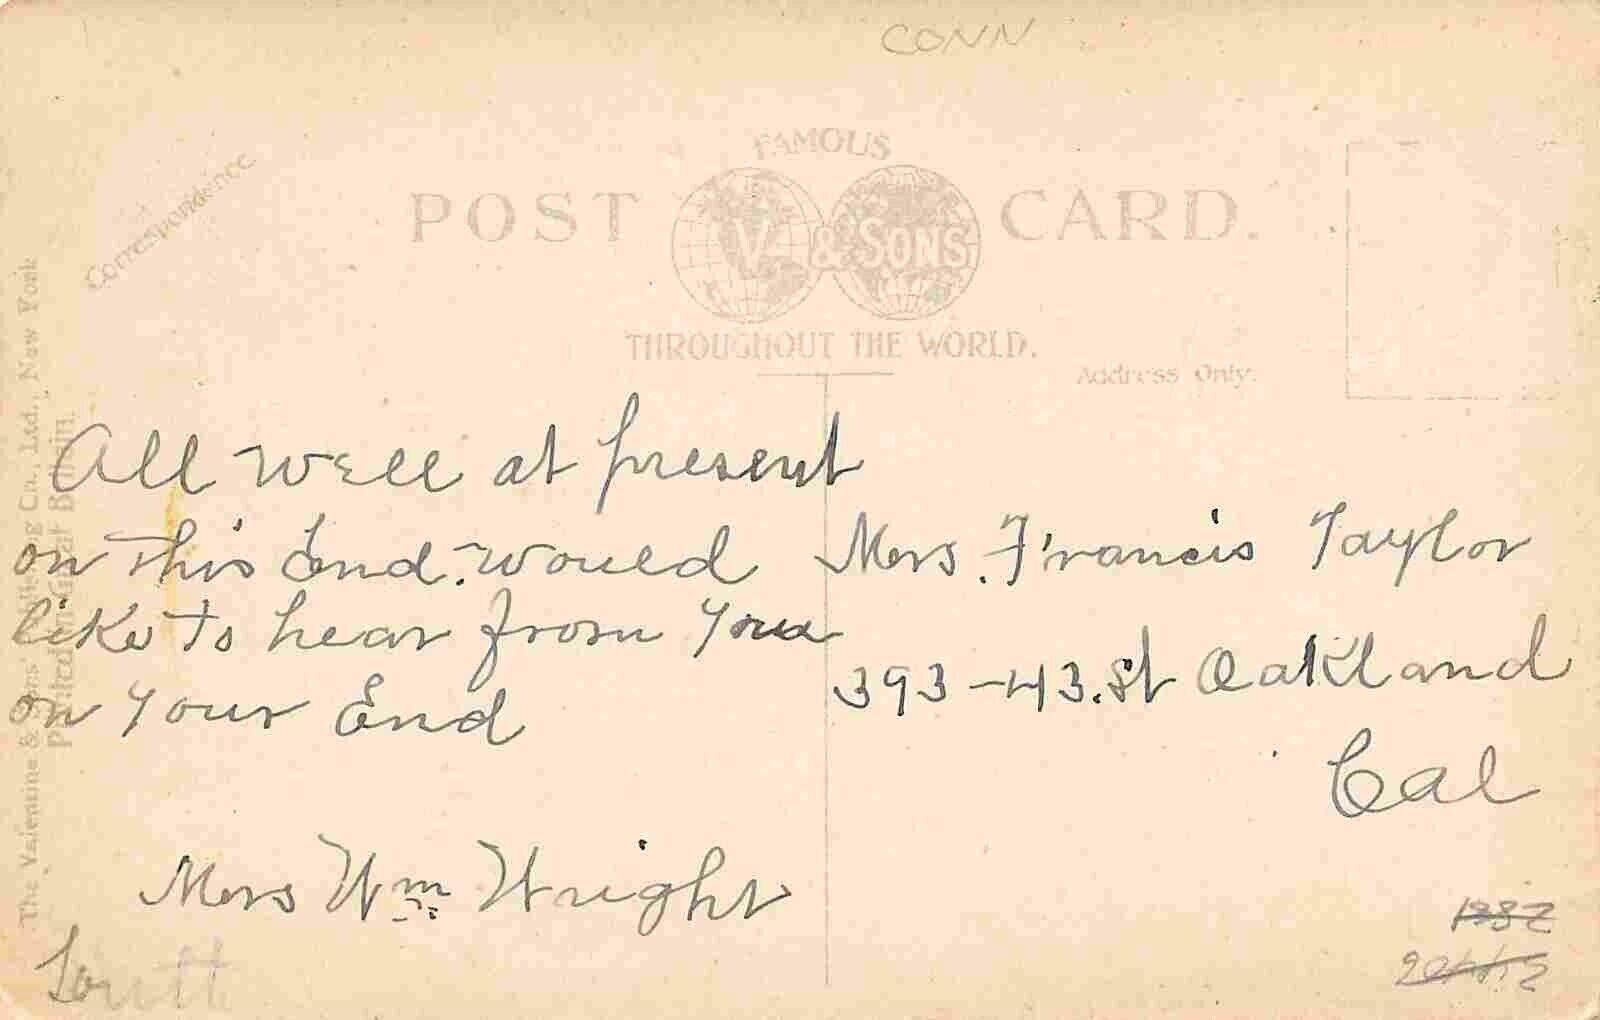 CONN
Correspondence
FAMOUS
POST CARD.
V. & SONS
THROUGHOUT THE WORLD.
Address Only.
The Valentine & Sons' Publishing Co., Ltd., New York
Printed in Great Britain.
All well at present
on this End. would
like to hear from You
on Your End
Mrs Wm Wright
Mrs. Francis Taylor
393-43.St Oakland
Cal